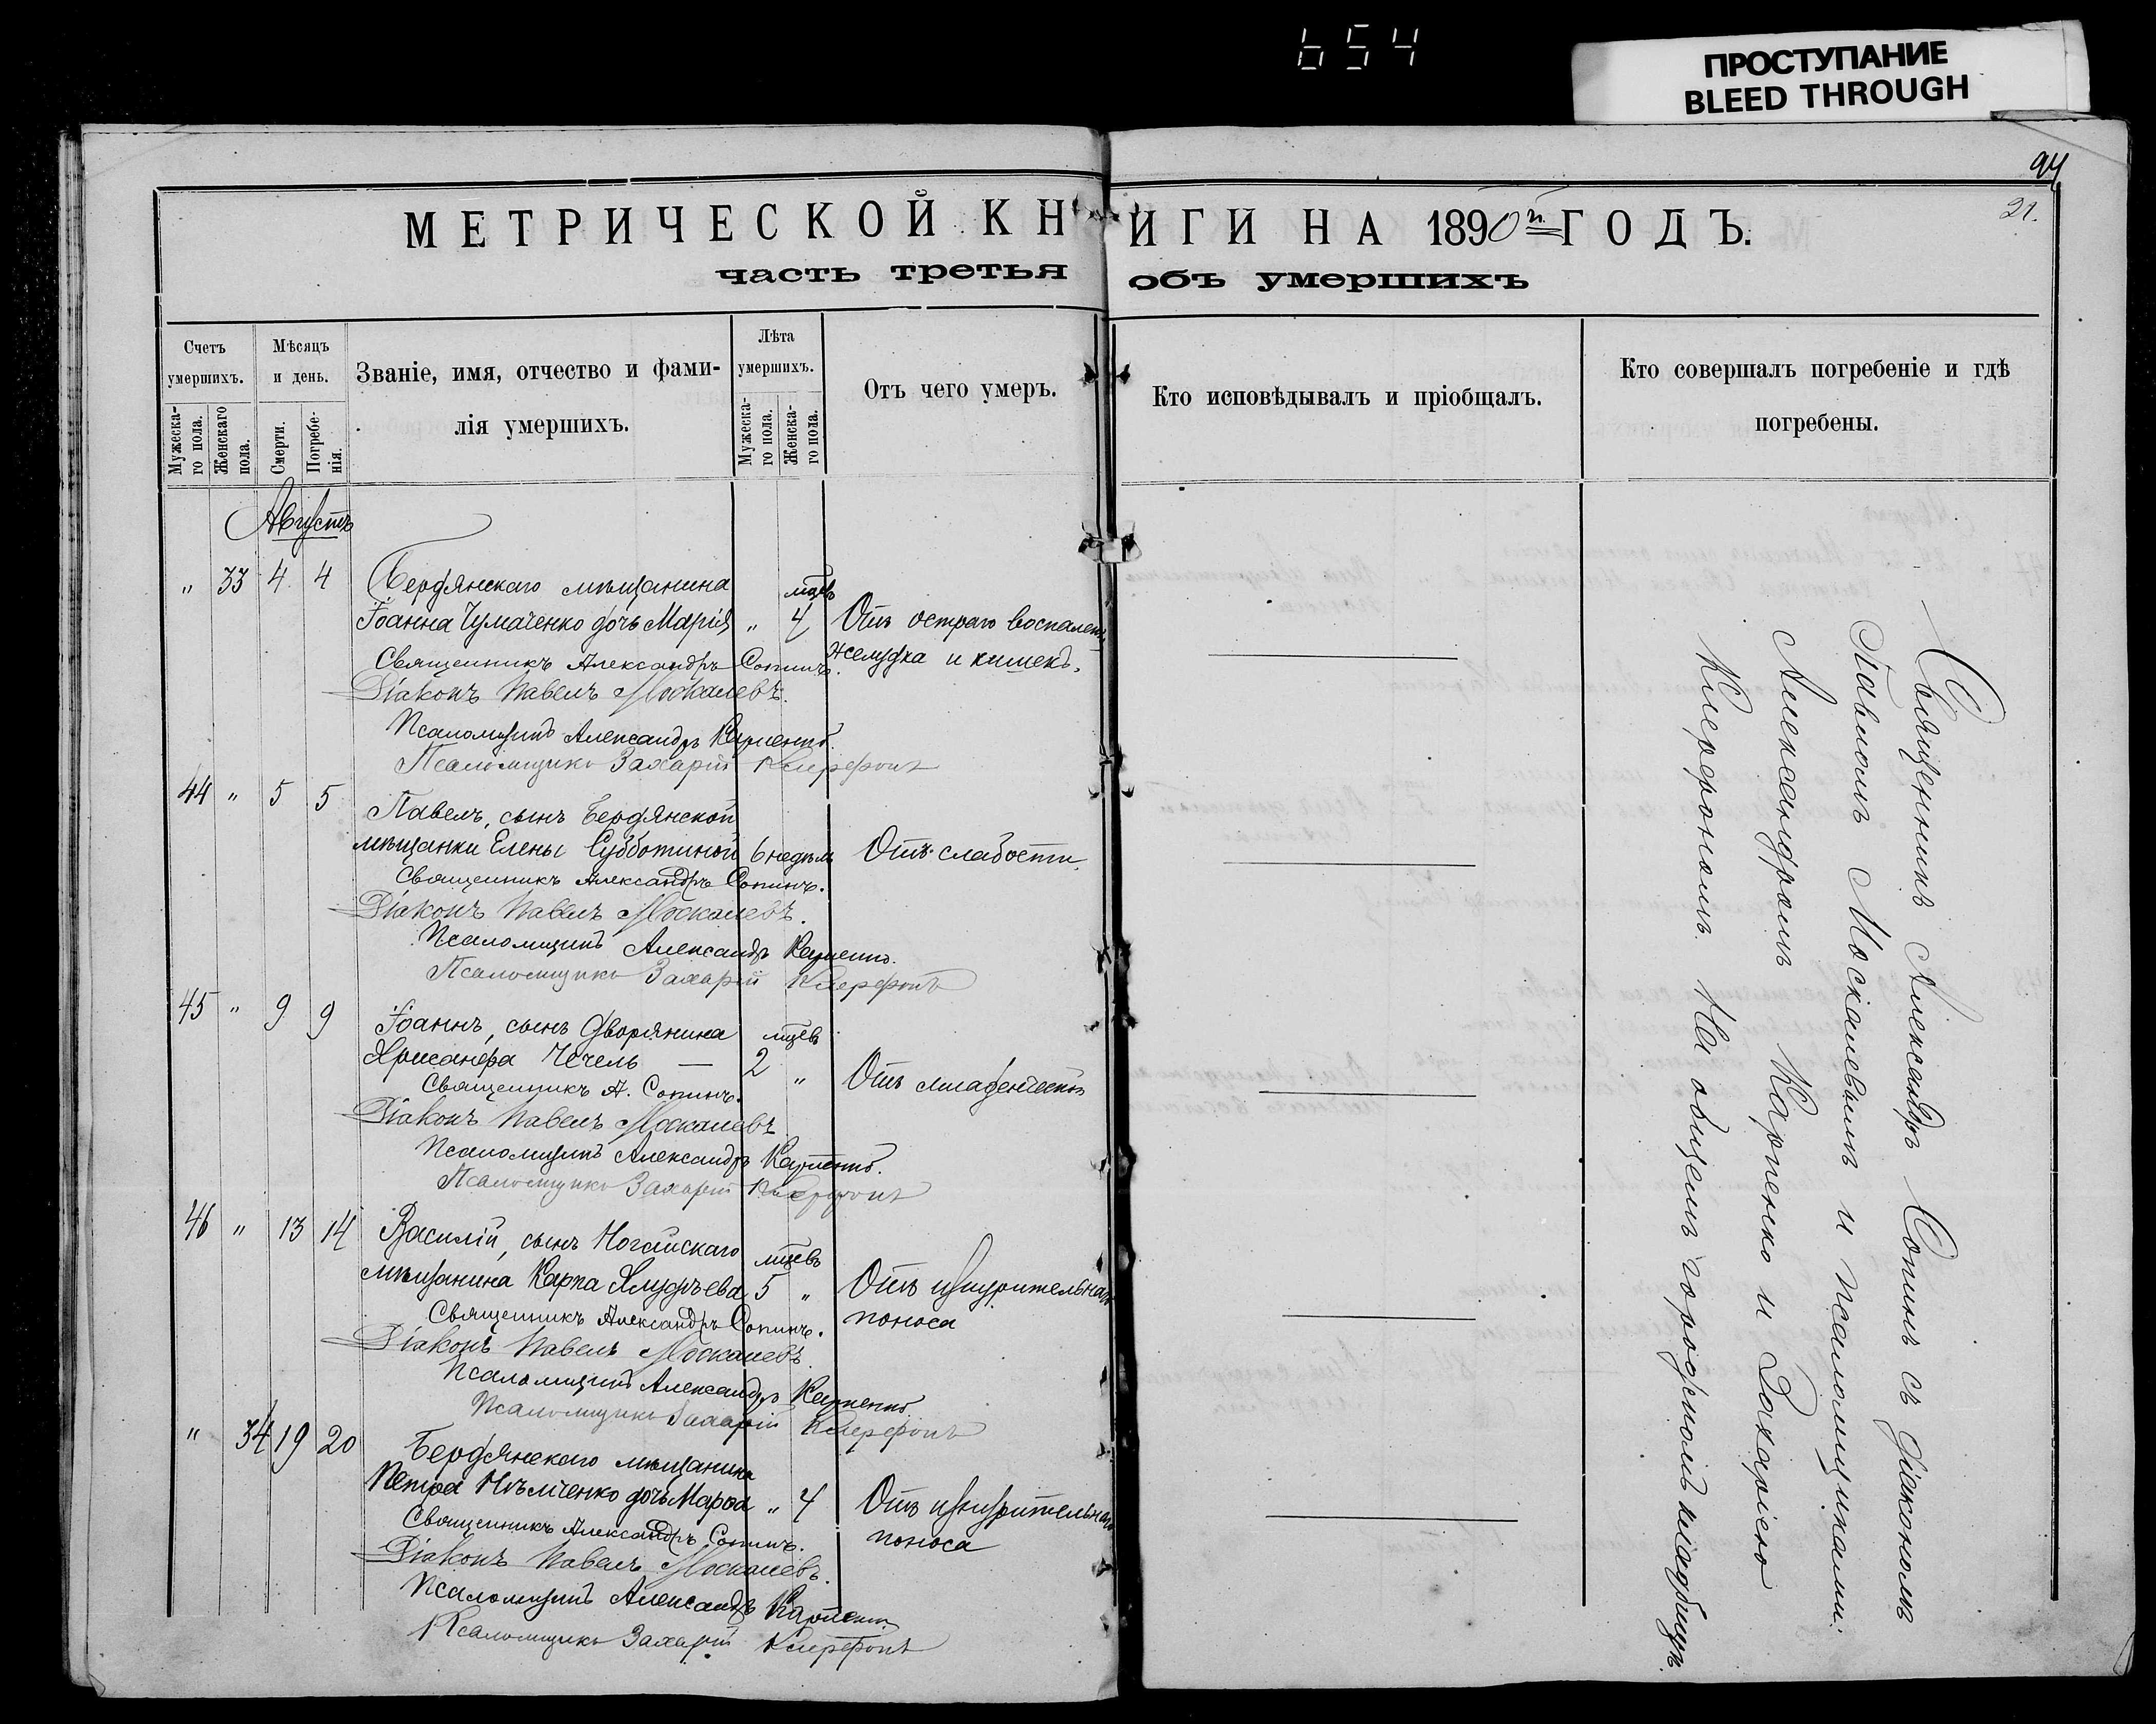 654
ПРОСТУПАНИЕ
BLEED THROUGH
94
21.
МЕТРИЧЕСКОЙ КНИГИ НА 1890й ГОДЪ.
часть третья объ умершихъ
Счетъ умершихъ.
Мужескаго пола.
Женскаго пола.
Мѣсяцъ и день.
Смерти.
Погребенія.
Званіе, имя, отчество и фамилія умершихъ.
Лѣта умершихъ.
Мужескаго пола.
Женскаго пола.
Отъ чего умеръ.
Кто исповѣдывалъ и пріобщалъ.
Кто совершалъ погребеніе и гдѣ погребены.
Августъ
" 33 4 4 Бердянскаго мѣщанина мцевъ
Іоанна Чумаченко дочь Марія " 4 Отъ остраго воспален
Священникъ Александръ Сопинъ. желудка и кишекъ.
Діаконъ Павелъ Москалевъ.
Псаломщикъ Александръ Карпенко.
Псаломщикъ Захарій Клерфонъ
44 " 5 5 Павелъ, сынъ Бердянской
мѣщанки Елены Субботиной 6 недѣль Отъ слабости
Священникъ Александръ Сопинъ.
Діаконъ Павелъ Москалевъ.
Псаломщикъ Александръ Карпенко.
Псаломщикъ Захарій Клерфонъ
45 " 9 9 Іоаннъ, сынъ дворянина мцевъ
Хрисанфа Чечель — 2 " Отъ младенческой
Священникъ А. Сопинъ.
Діаконъ Павелъ Москалевъ
Псаломщикъ Александръ Карпенко.
Псаломщикъ Захарій Клерфонъ
46 " 13 14 Василій, сынъ Ногайскаго мцевъ
мѣщанина Карпа 5 " Отъ изнурительнаго
Священникъ Александръ Сопинъ. поноса
Діаконъ Павелъ Москалевъ.
Псаломщикъ Александръ Карпенко
Псаломщикъ Захарій Клерфонъ
" 34 19 20 Бердянскаго мѣщанина
Петра Нѣмченко дочь Марѳа " 4 Отъ изнурительнаго
Священникъ Александръ Сопинъ. поноса
Діаконъ Павелъ Москалевъ.
Псаломщикъ Александръ Карпенко
Псаломщикъ Захарій Клерфонъ
Священникъ Александръ Сопинъ съ діакономъ
Павломъ Москалевымъ и псаломщиками:
Александромъ Карпенко и Захаріею
Клерфономъ. На общемъ городскомъ кладбищѣ.